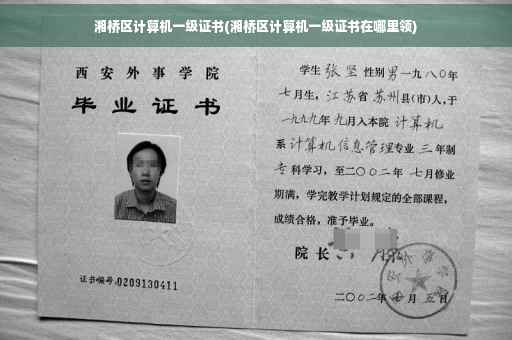 湘桥区计算机一级证书(湘桥区计算机一级证书在哪里领)
西安外事学院
毕业证书
证书编号:0209130411
学生 张坚 性别 男 一九八〇年
七月生, 江苏省 苏州县(市)人,于
一九九九年 九月入本院 计算机
系 计算机信息管理专业 三 年制
专科学习,至二〇〇二年 七月修业
期满,学完教学计划规定的全部课程,
成绩合格,准予毕业。
院长
二〇〇二年 月 五日